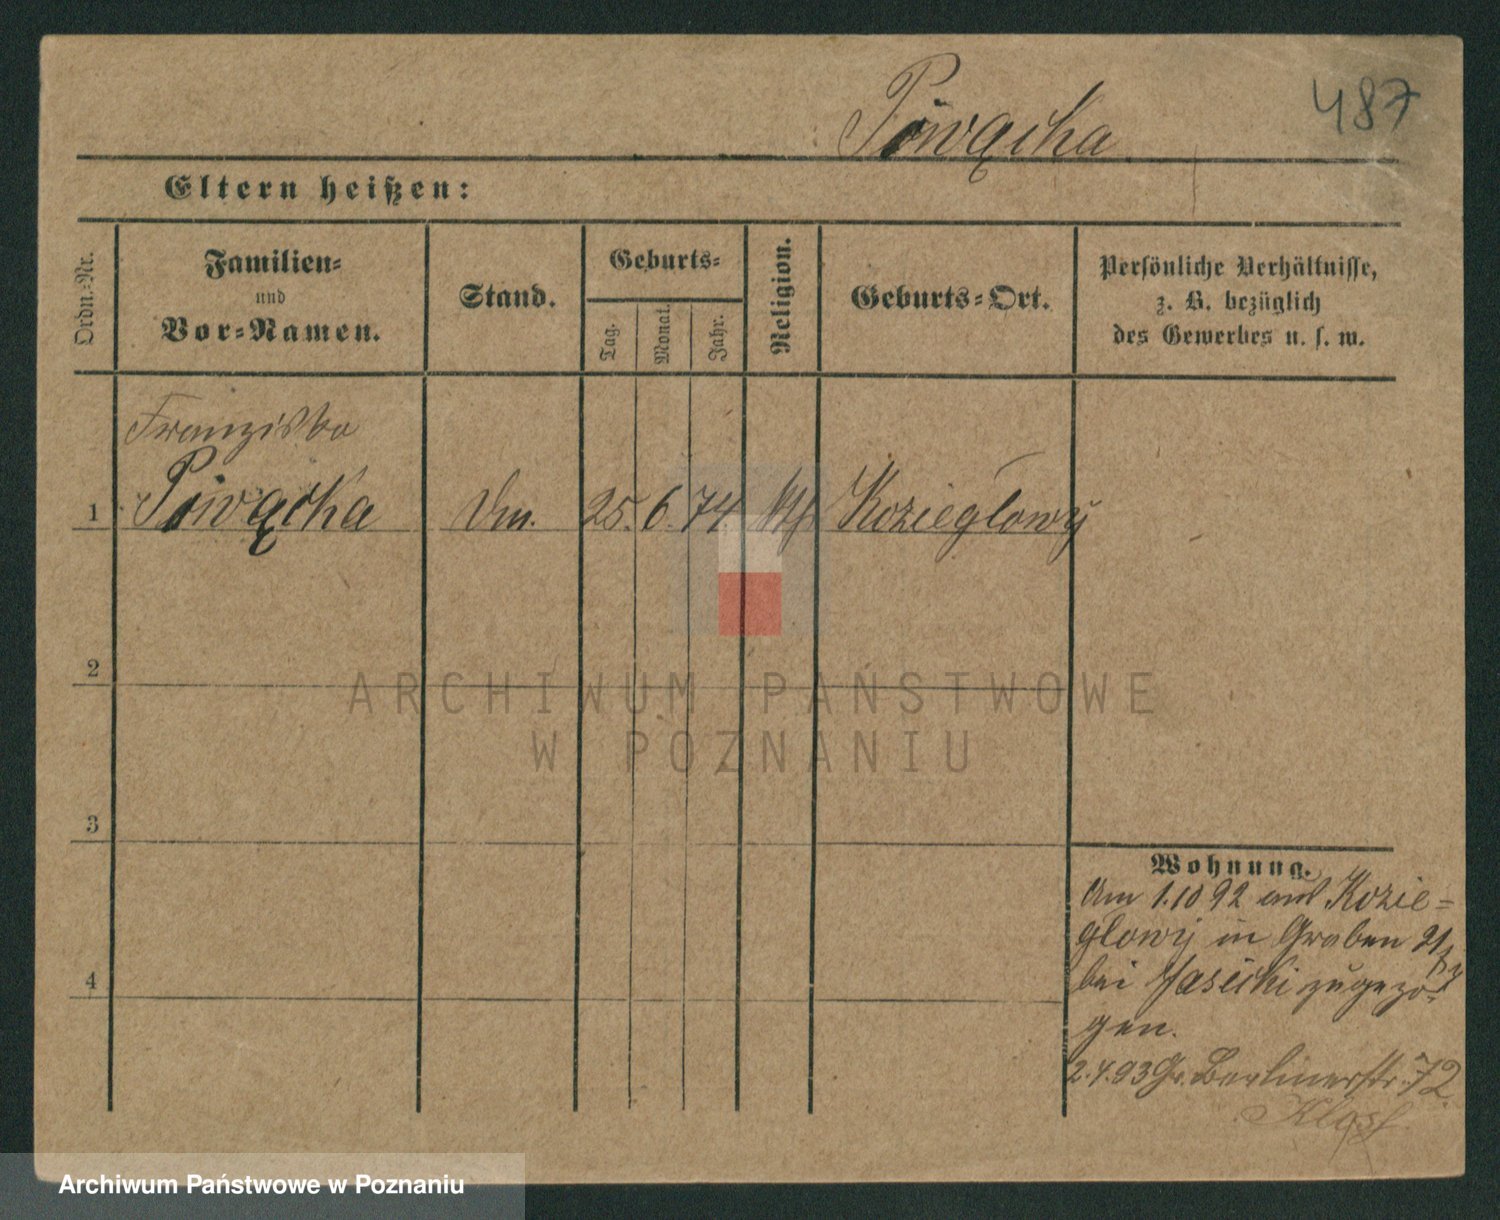 487
Piwącka
Eltern heißen:
Ordn.-Nr.
Familien-
und
Vor-Namen.
Stand.
Geburts-
Tag.
Monat.
Jahr.
Religion.
Geburts-Ort.
Persönliche Verhältnisse,
z. B. bezüglich
des Gewerbes u. s. w.
Franziska
1 Piwącka 25. 6. 74 Kozieglowy
2
3
4
Wohnung.
Am 1.10 92 aus Kozie=
glowy in Graben
bei zugezo-
gen.
2.4.93 Gr. Berlinerstr. 72.
ARCHIWUM PAŃSTWOWE
W POZNANIU
Archiwum Państwowe w Poznaniu